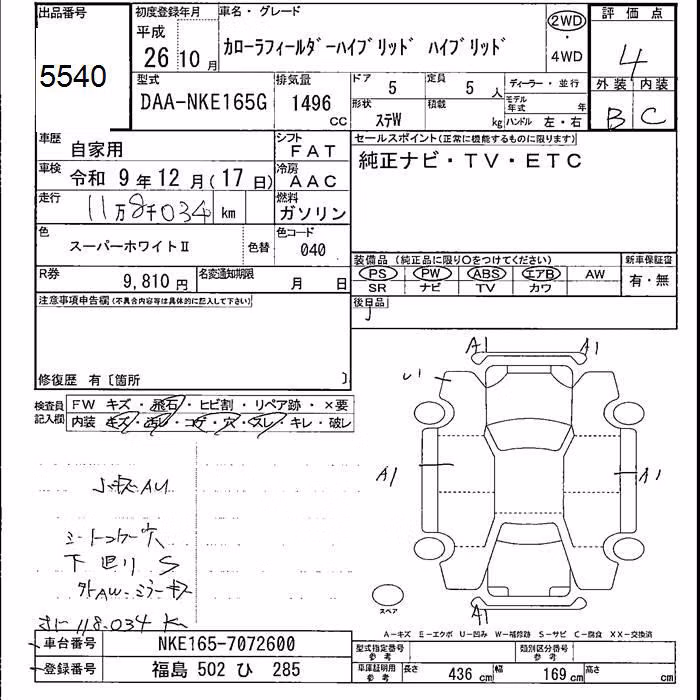 出品番号 初度登録年月 車名・グレード 評価点
5540 平成 26 10月 カローラフィールダーハイブリッド ハイブリッド 2WD・4WD 4
型式 排気量 ドア 定員 ディーラー・並行 外装 内装
DAA-NKE165G 1496 cc 5 5人 モデル年式 年 B C
形状 ステW 積載 kg ハンドル 左・右
車歴 自家用 シフト FAT セールスポイント(正常に機能するものに限ります)
車検 令和 9年 12月(17日) 冷房 AAC 純正ナビ・TV・ETC
走行 11万8千034 km 燃料 ガソリン
色 スーパーホワイトⅡ 色替 色コード 040
装備品(純正品に限り○をつけてください) 新車保証書
R券 9,810円 名変通知期限 月 日 PS PW ABS エアB AW 有・無
SR ナビ TV カワ
注意事項申告欄(不具合内容等は具体的に記入して下さい) 後日品
修復歴 有〔箇所 〕
検査員記入欄 FW キズ・飛石・ヒビ割・リペア跡・×要
内装 キズ・汚レ・コゲ・穴・スレ・キレ・破レ
A1 A1
A1 A1
A1
シートコゲ穴
下廻り S
外AW・ミラーキズ
118.034 K
スペア
A-キズ E-エクボ U-凹み W-補修跡 S-サビ C-腐食 XX-交換済
車台番号 NKE165-7072600 型式指定番号 参考 類別区分番号 参考
登録番号 福島 502 ひ 285 車庫証明用 参考 長さ 436 cm 幅 169 cm 高さ cm